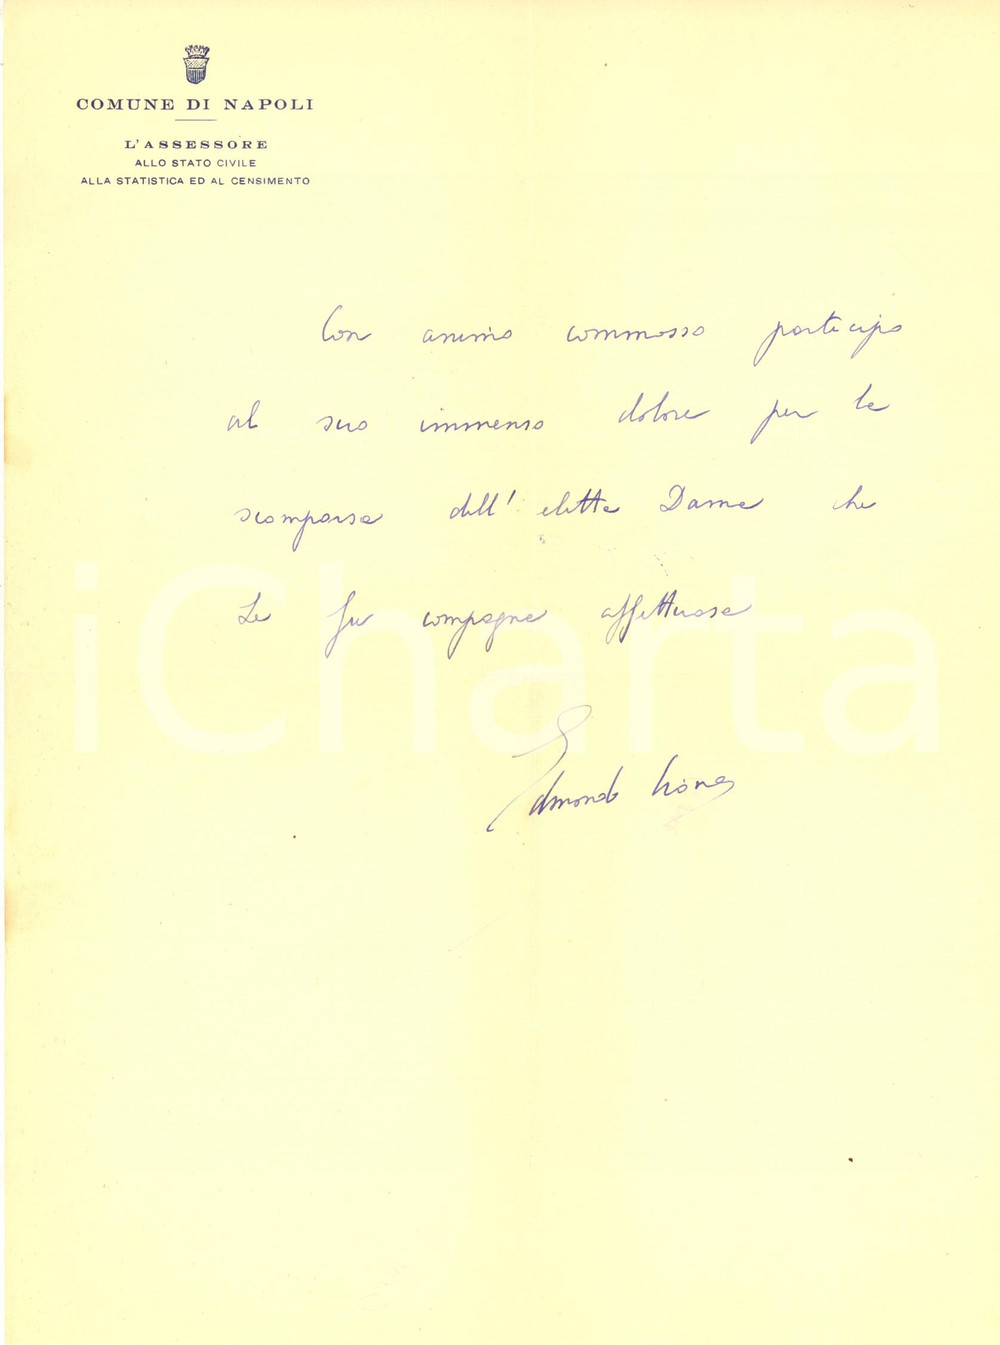 COMUNE DI NAPOLI
L'ASSESSORE
ALLO STATO CIVILE
ALLA STATISTICA ED AL CENSIMENTO
Con animo commosso partecipo
al suo immenso dolore per la
scomparsa dell' eletta Dama che
Le fu compagna affettuosa
Edmondo
iCharta